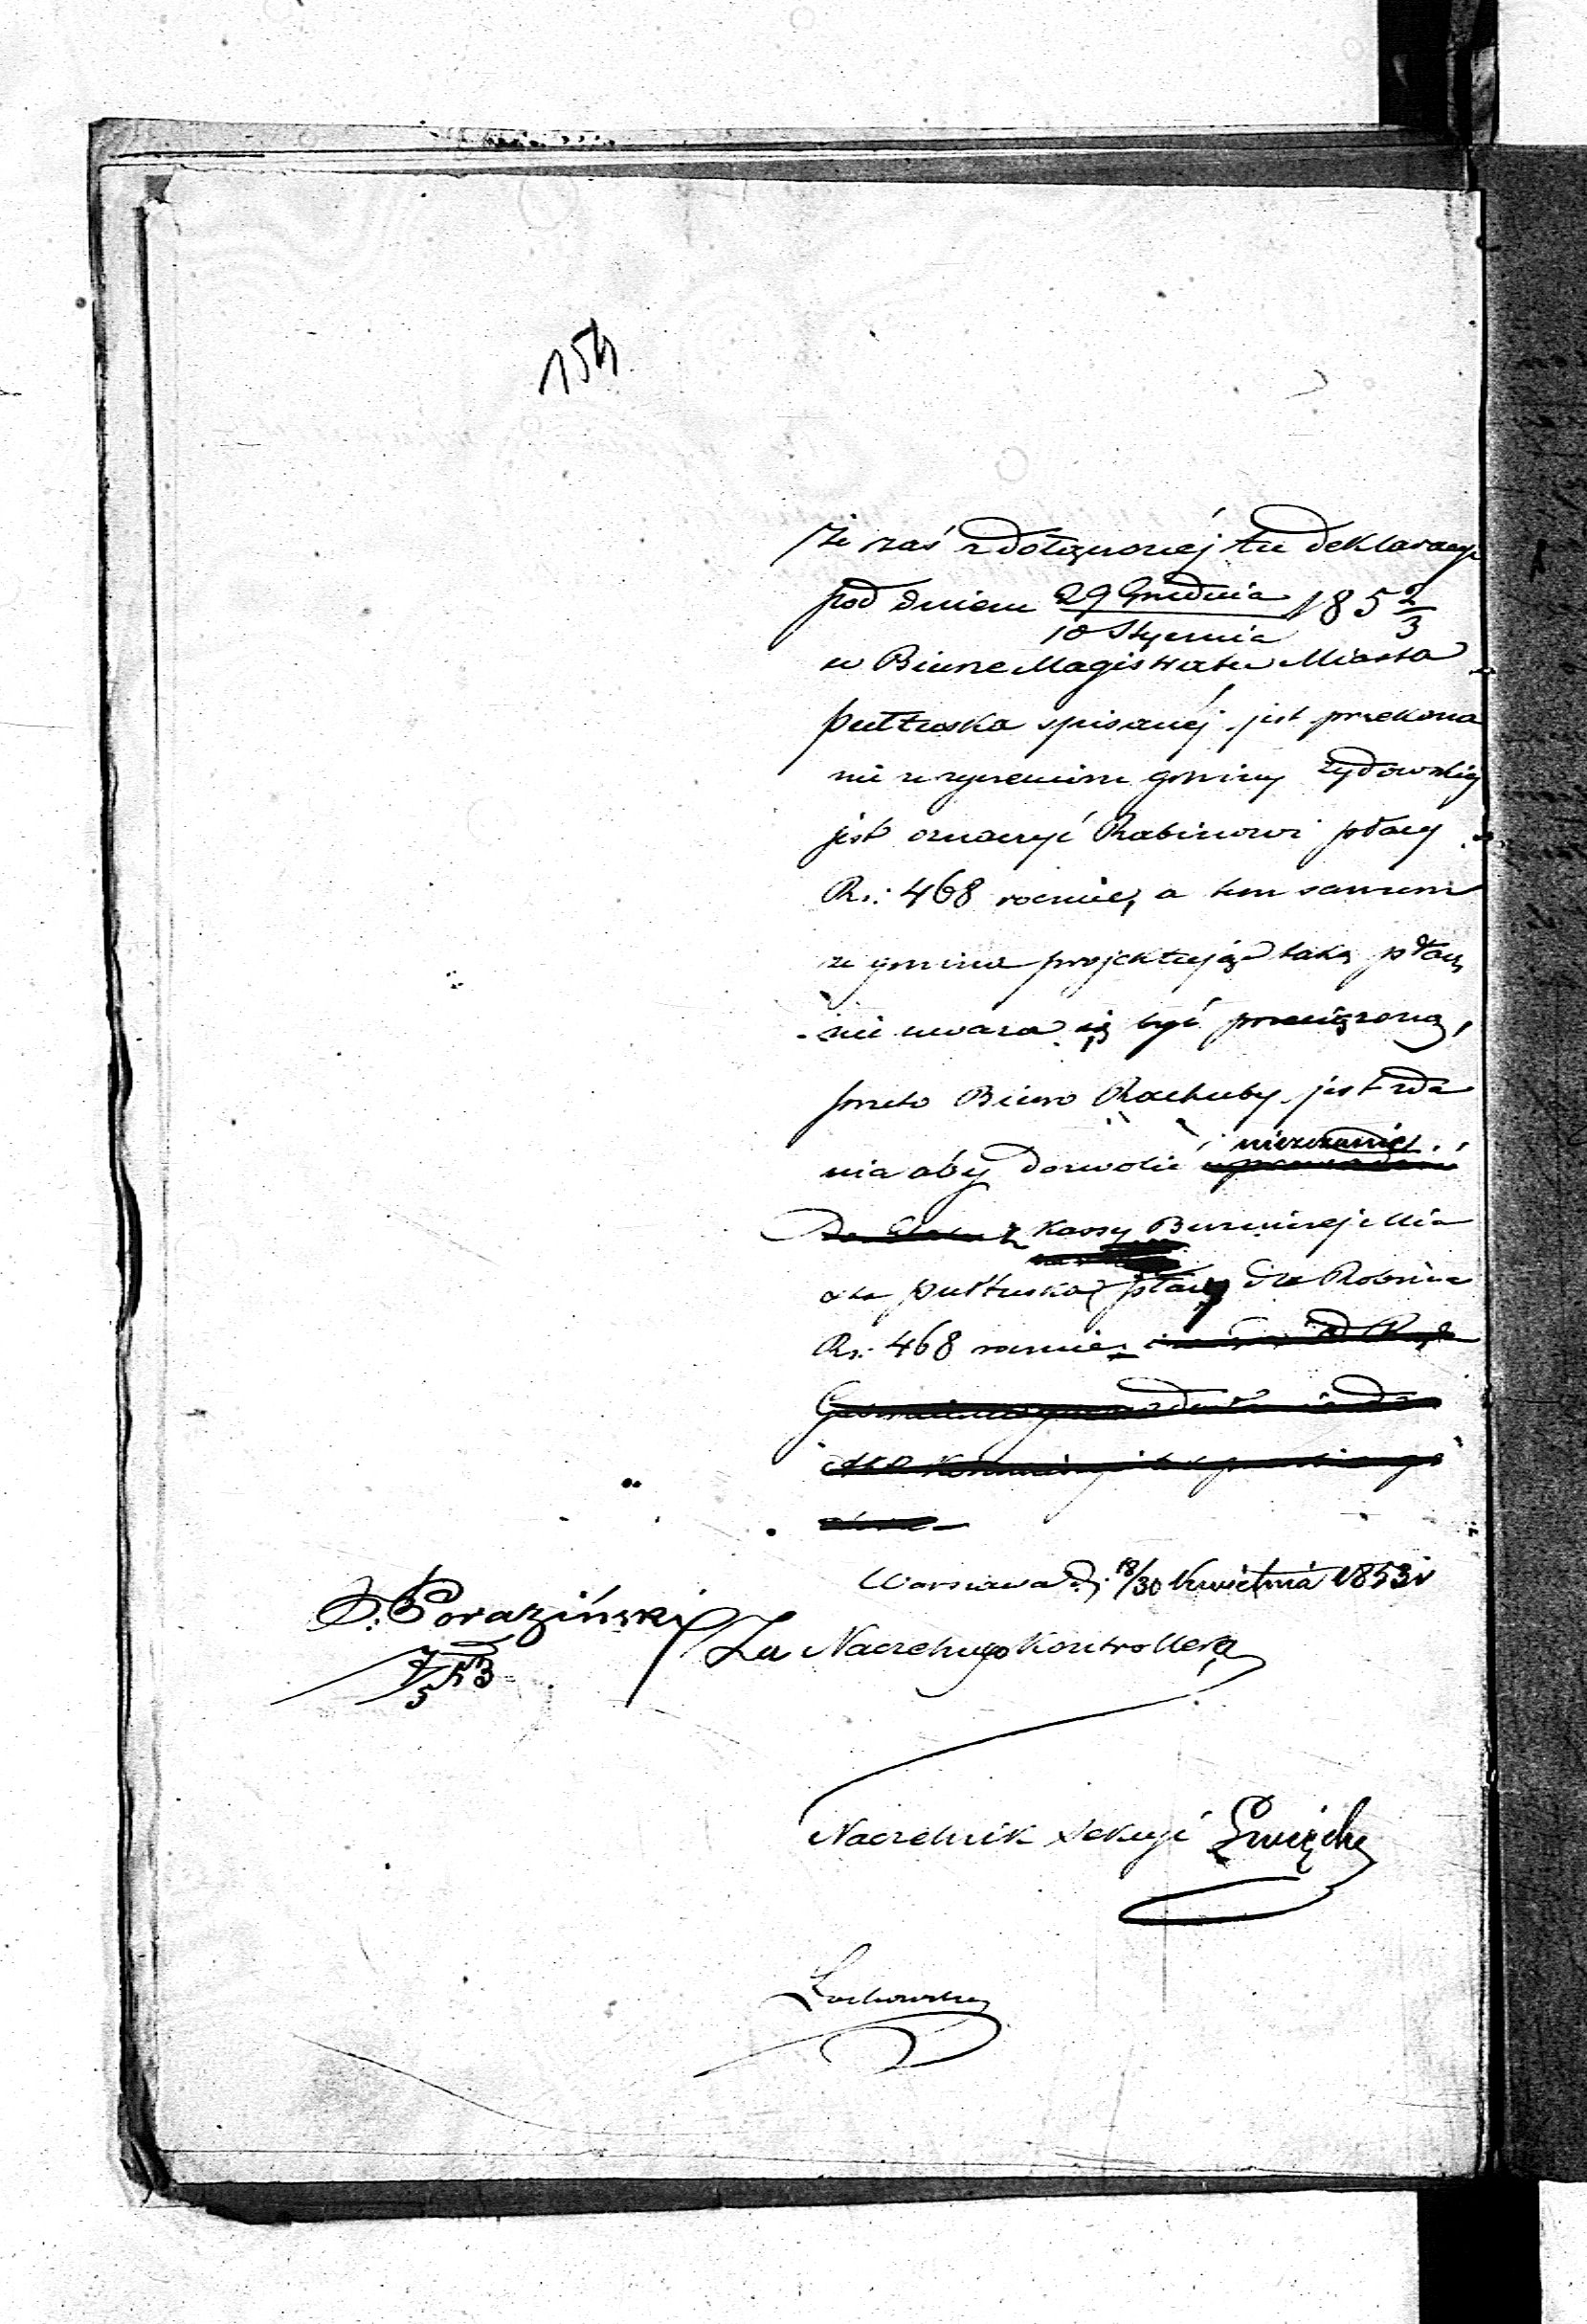 154
Że zaś z dołączonej tu deklaracyi
pod dniem 29 Grudnia / 10 Stycznia 185 2/3
w Biurze Magistratu Miasta
Pułtuska spisanéj jest przekona
nie życzeniem gminy Żydowskiej
jest oznaczyć Rabinowi płacy
Rs: 468 rocznie, a tem samem
że gmina projektując taką płacę
nie uważa się być przeciążoną,
przeto Biuro Rachuby jest zda
nia aby dozwolić
z Kassy Bużniczej Mia
sta Pułtuska płacy dla Rabina
Rs: 468 rocznie
Warszawa d. 18/30 Kwietnia 1853 r
Poraziński
Za Naczelnego Kontrollera
Naczelnik Sekcyi